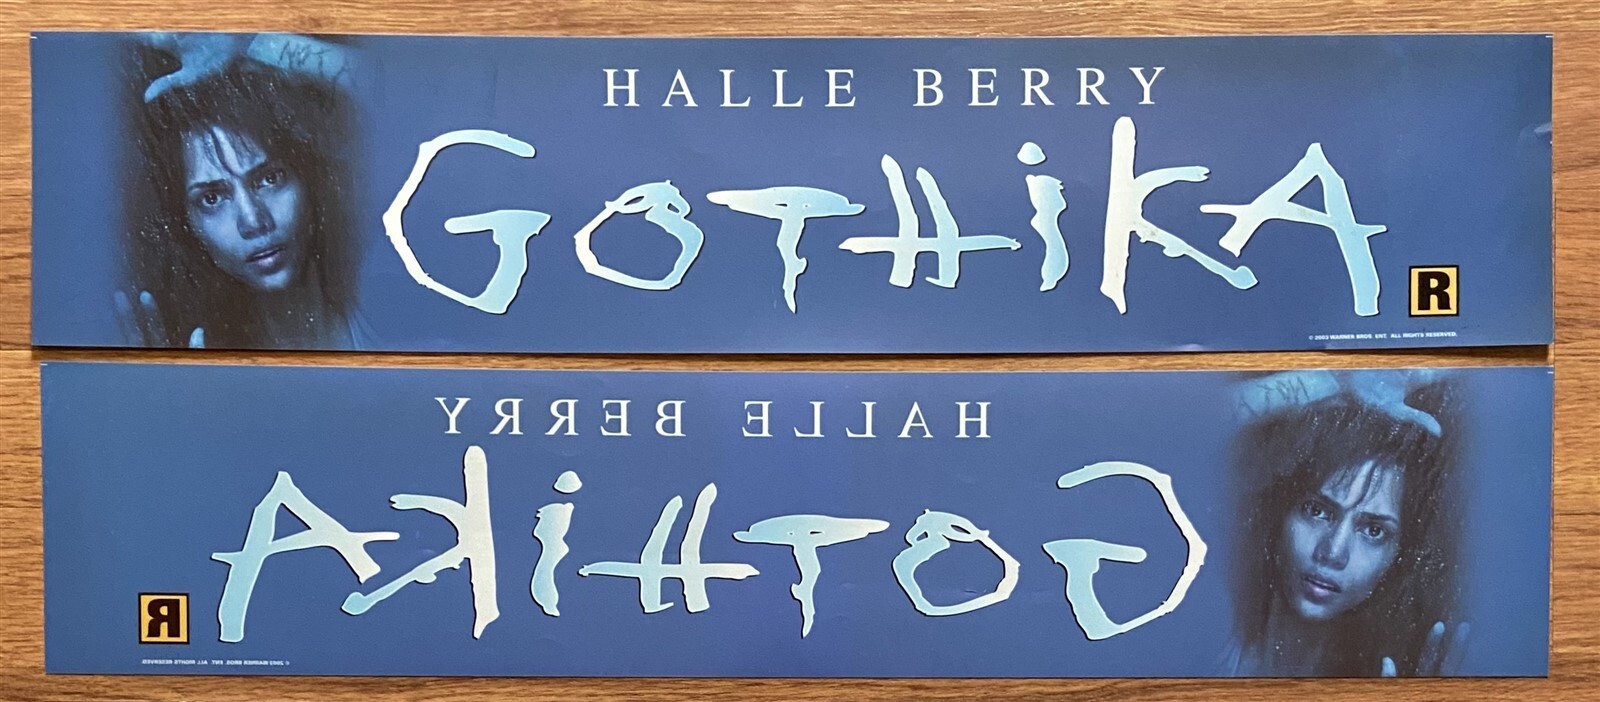 HALLE BERRY
GOTHiKA
R
© 2003 WARNER BROS. ENT. ALL RIGHTS RESERVED.
HALLE BERRY
GOTHiKA
R
© 2003 WARNER BROS. ENT. ALL RIGHTS RESERVED.